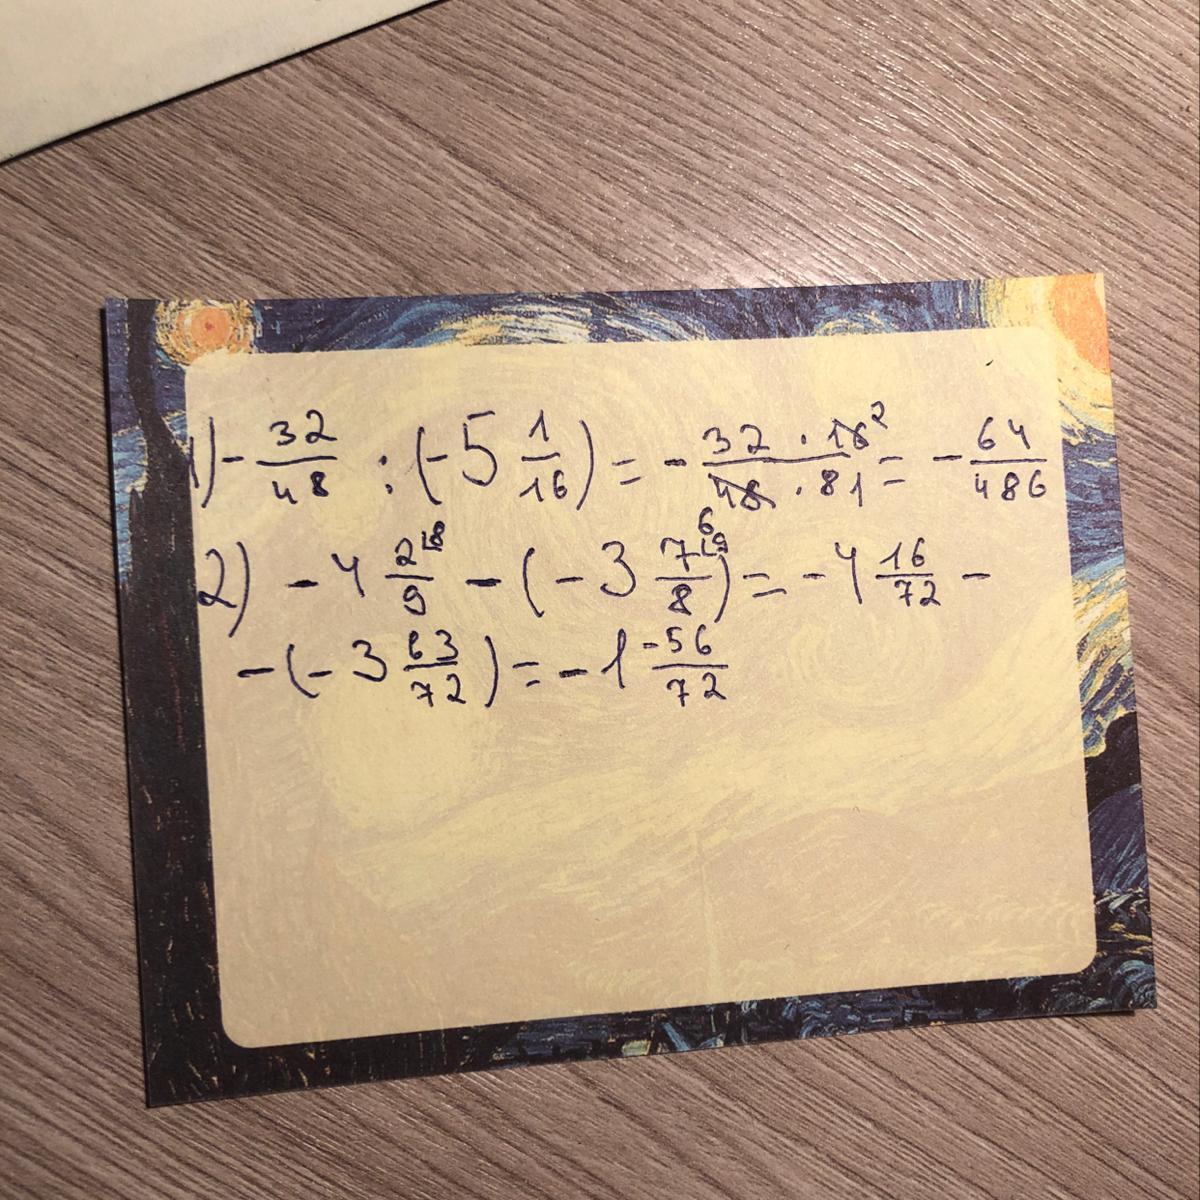 1) - 32/48 : (-5 1/16) = - 32 · 16²/48 · 81 = - 64/486
2) - 4 2⌊8/9 - (-3 7⌊9/8) = -4 16/72 -
- (-3 63/72) = -1 -56/72